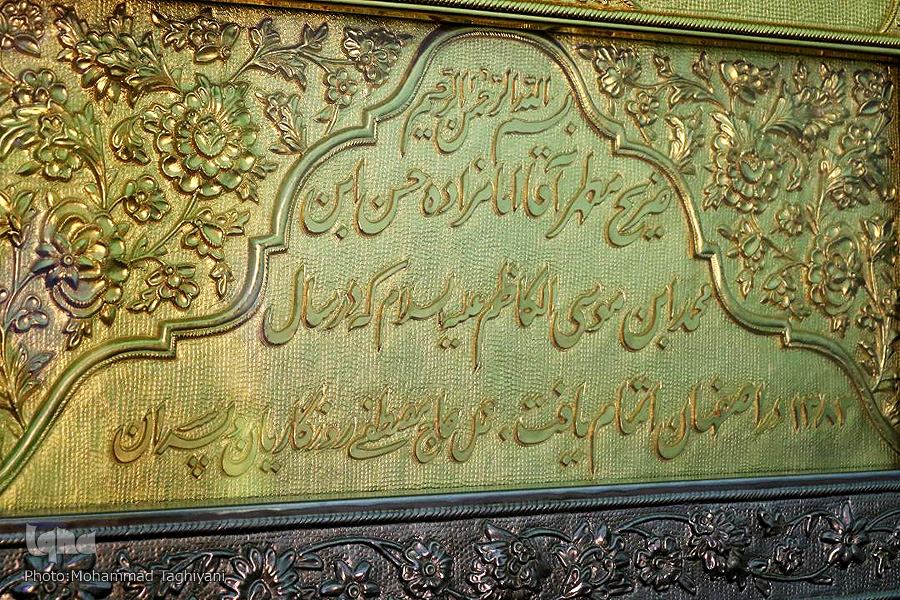 بسم الله الرحمن الرحیم
ضریح مطهر آقا امامزاده حسن ابن
محمد ابن موسی الکاظم علیه السلام که در سال
۱۳۸۲ در اصفهان اتمام یافت. عمل حاج مصطفی روزگاریان و پسران
iqna
Photo:Mohammad Taghiyani